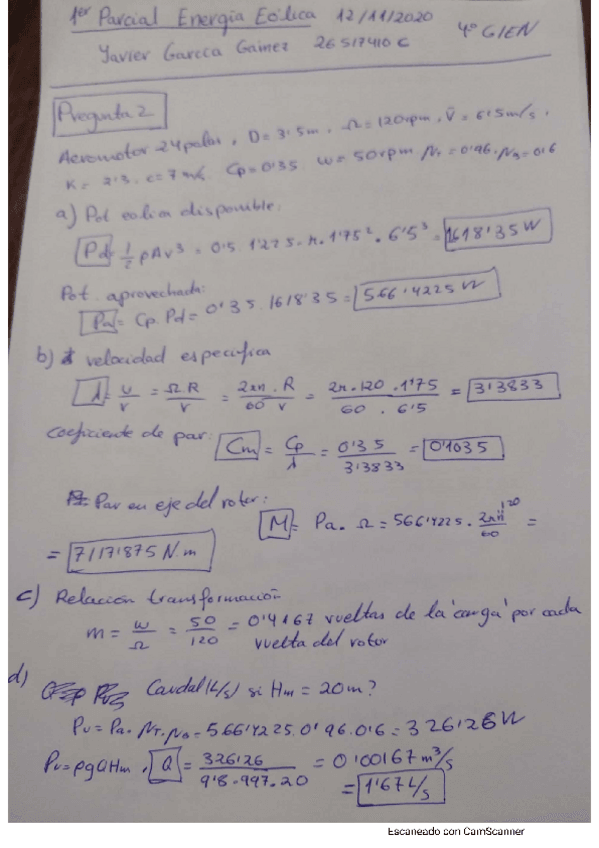 1er Parcial Energía Eólica 12/11/2020 4º GIEN
Javier García Gainez 26517410C
Pregunta 2
Aeromotor 24 palas, D = 3'5m, Ω = 120rpm, V̄ = 6'5m/s,
K = 2'3, c = 7 m/s, Cp = 0'35, w = 50 rpm, ηT = 0'96, ηB = 0'6
a) Pot eolica disponible:
Pd = 1/2 ρAv³ = 0'5 · 1'225 · π · 1'75² · 6'5³ = 1618'35 W
Pot. aprovechada:
Pa = Cp · Pd = 0'35 · 1618'35 = 566'4225 W
b) velocidad especifica
λ = u/v = ΩR/v = 2πn · R / 60 v = 2π · 120 · 1'75 / 60 · 6'5 = 3'3833
Coeficiente de par: Cm = Cp/λ = 0'35/3'3833 = 0'1035
Par en eje del rotor: M = Pa · Ω = 566'4225 · 2πn 120/60 =
= 7117'875 N.m
c) Relación transformación
m = w/Ω = 50/120 = 0'4167 vueltas de la 'carga' por cada
vuelta del rotor
d) Caudal (L/s) si Hm = 20m?
Pu = Pa · ηT · ηB = 566'4225 · 0'96 · 0'6 = 326'26 W
Pu = ρgQHm, Q = 326'26 / 9'8 · 997 · 20 = 0'00167 m³/s
= 1'67 L/s
Escaneado con CamScanner